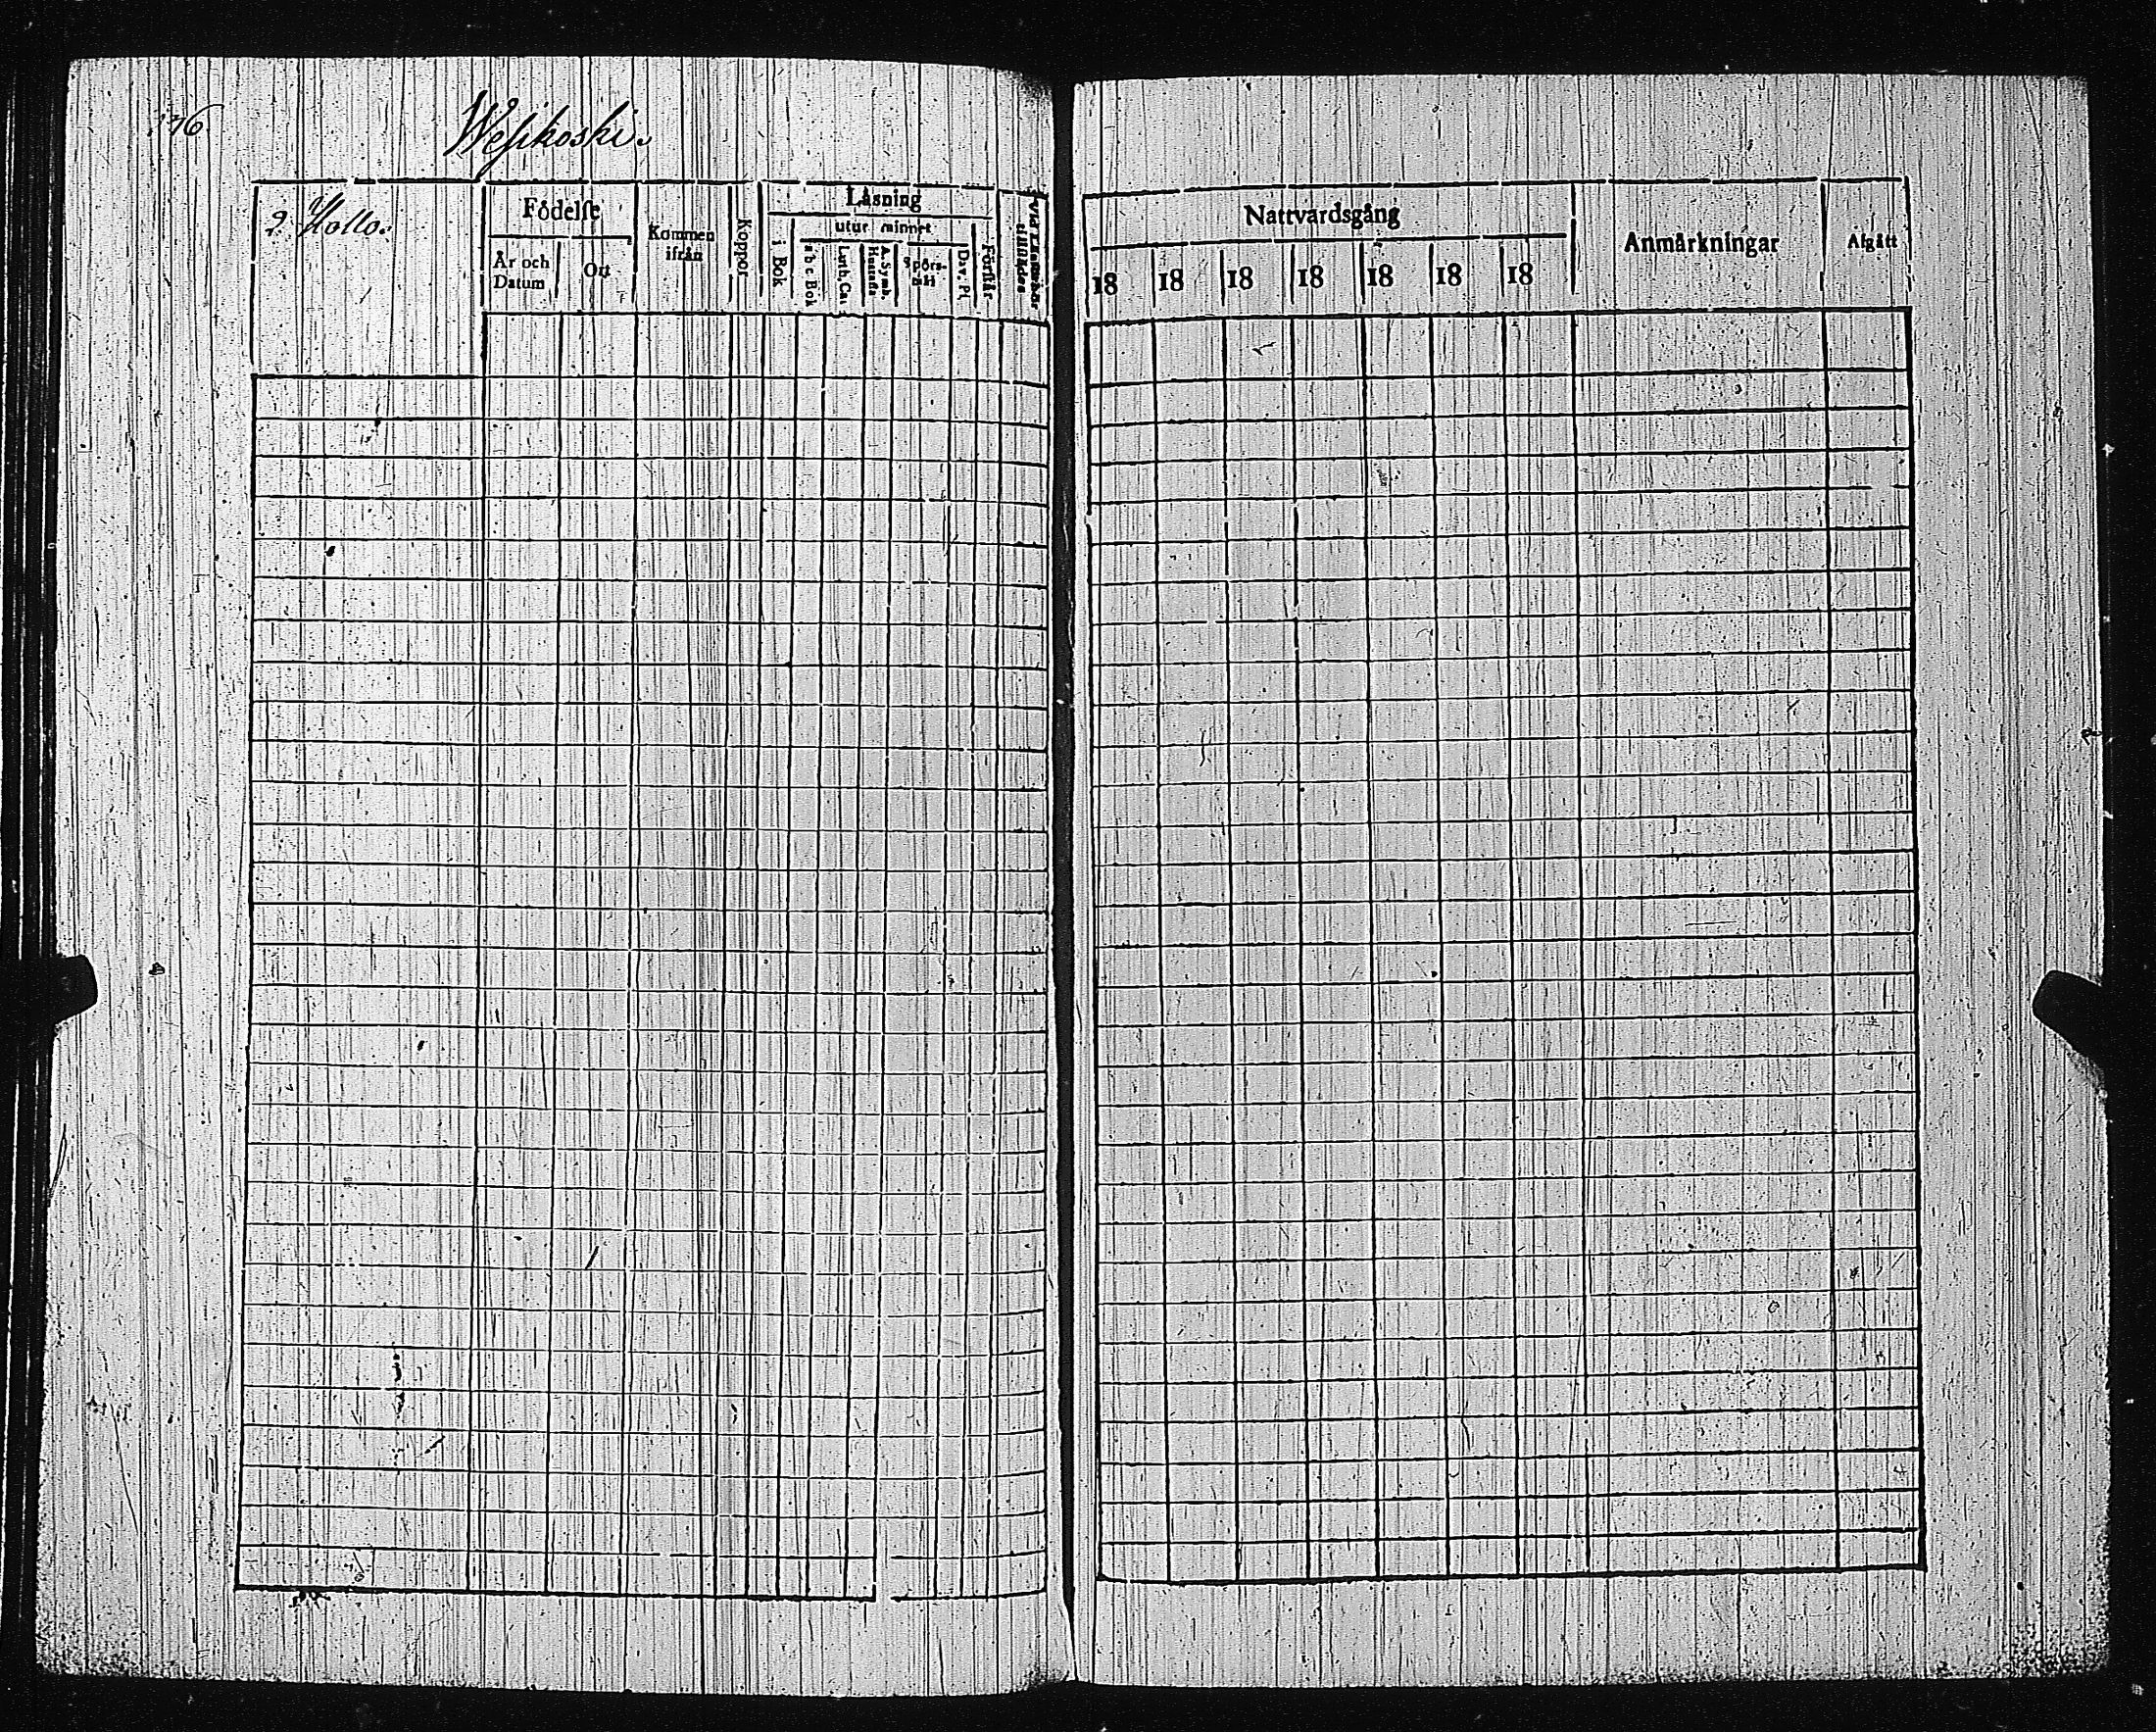 176
Wesikoski.
2. Hollo.
Födelse
År och Datum
Ort
Kommen ifrån
Koppor
Läsning
i Bok
utur minnet
a b c Bok
Luth. Cat
A. Symb. Hustafla
Spörsmål
Dav. Ps
Förstår
Nattvardsgång
18 18 18 18 18 18 18
Anmärkningar
Afgått